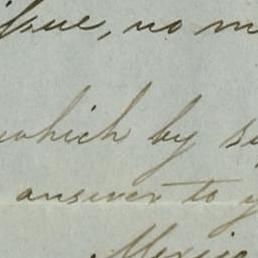 issue, no m
which by s
answer to y
Mexic